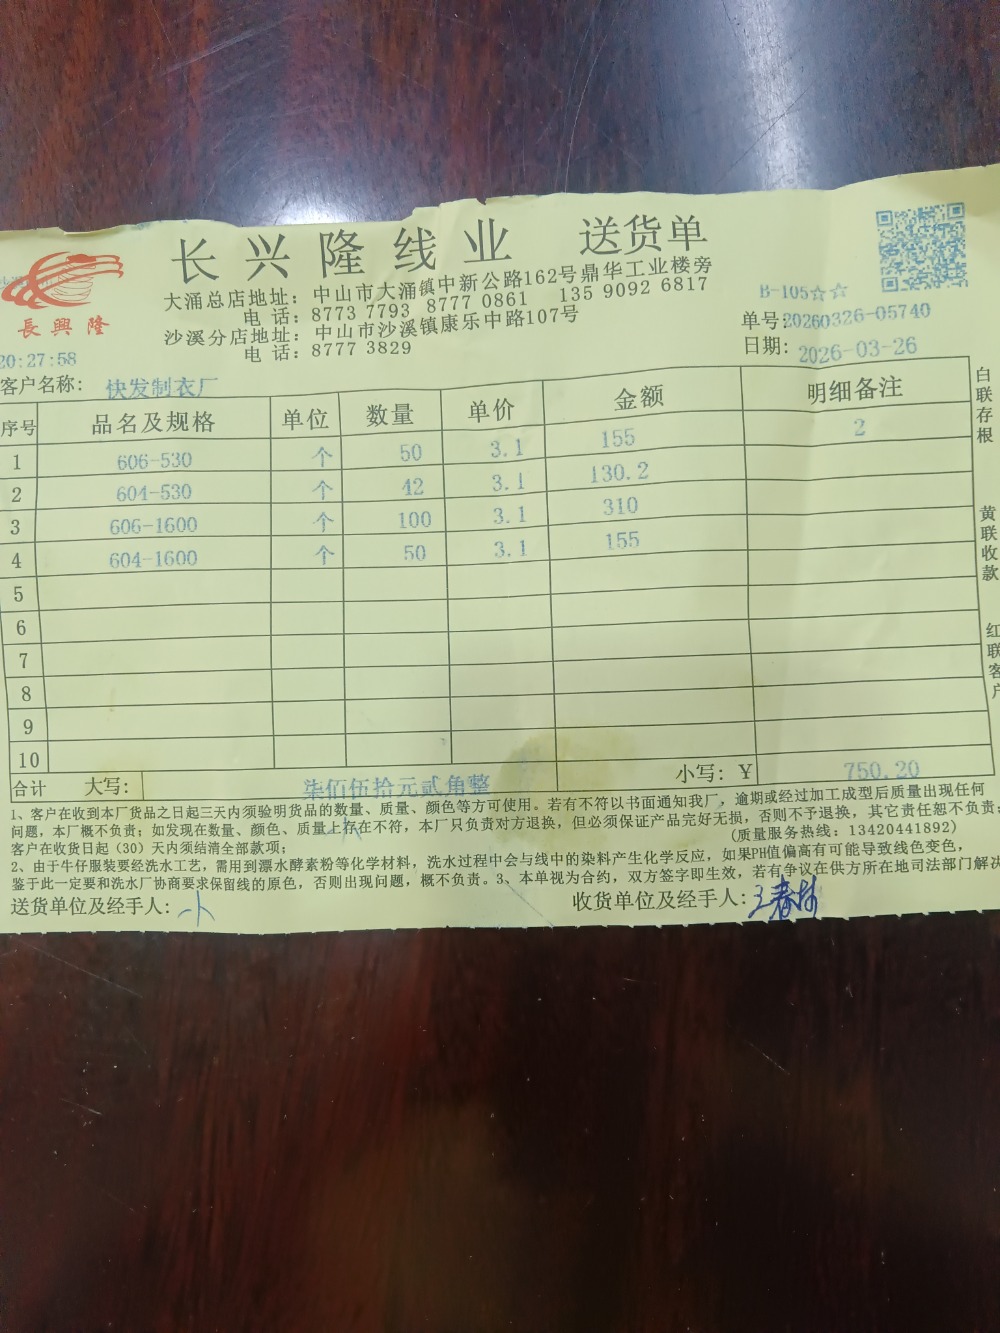 长兴隆线业 送货单
長興隆
大涌总店地址：中山市大涌镇中新公路162号鼎华工业楼旁
电 话：8773 7793 8777 0861 135 9092 6817
沙溪分店地址：中山市沙溪镇康乐中路107号
电 话：8777 3829
B-105☆☆
单号:20260326-05740
日期: 2026-03-26
20:27:58
客户名称: 快发制衣厂
序号 品名及规格 单位 数量 单价 金额 明细备注
1 606-530 个 50 3.1 155 2
2 604-530 个 42 3.1 130.2
3 606-1600 个 100 3.1 310
4 604-1600 个 50 3.1 155
5
6
7
8
9
10
合计 大写: 柒佰伍拾元贰角整 小写: ¥ 750.20
1、客户在收到本厂货品之日起三天内须验明货品的数量、质量、颜色等方可使用。若有不符以书面通知我厂，逾期或经过加工成型后质量出现任何
问题，本厂概不负责；如发现在数量、颜色、质量上存在不符，本厂只负责对方退换，但必须保证产品完好无损，否则不予退换，其它责任恕不负责；
客户在收货日起（30）天内须结清全部款项； (质量服务热线：13420441892)
2、由于牛仔服装要经洗水工艺，需用到漂水酵素粉等化学材料，洗水过程中会与线中的染料产生化学反应，如果PH值偏高有可能导致线色变色，
鉴于此一定要和洗水厂协商要求保留线的原色，否则出现问题，概不负责。3、本单视为合约，双方签字即生效，若有争议在供方所在地司法部门解决
送货单位及经手人: 收货单位及经手人: 王春林
白联存根
黄联收款
红联客户